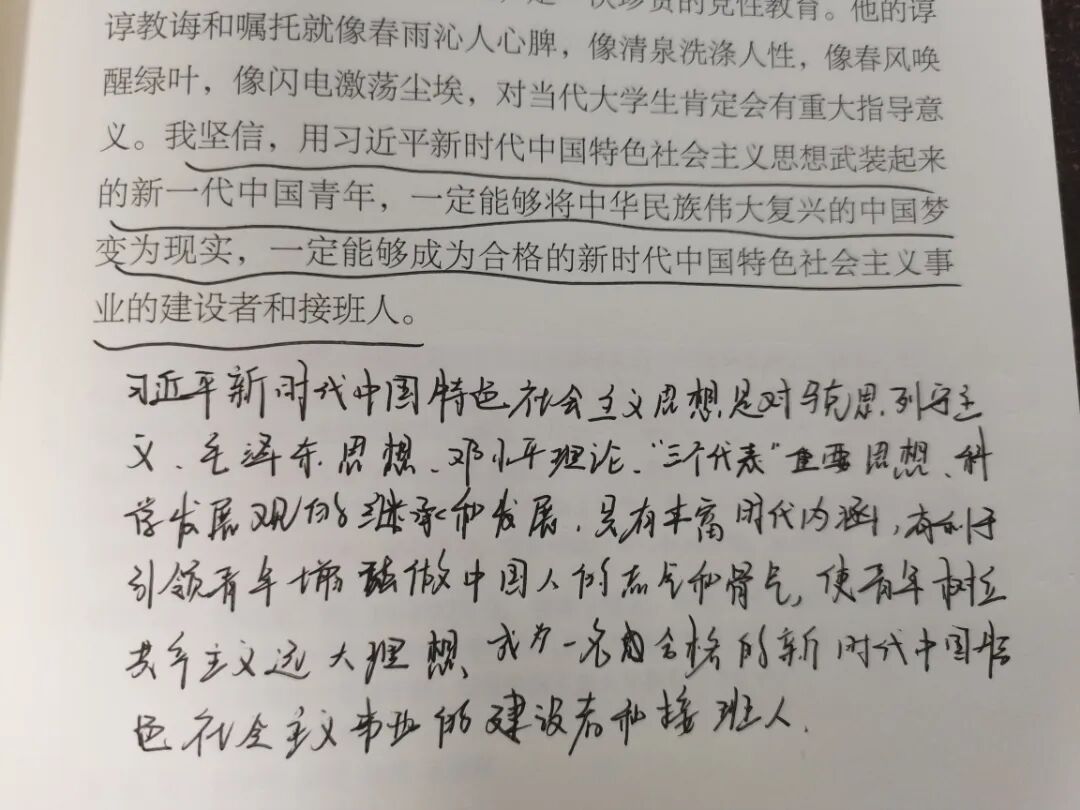 是一次珍贵的党性教育。他的谆
谆教诲和嘱托就像春雨沁人心脾，像清泉洗涤人性，像春风唤
醒绿叶，像闪电激荡尘埃，对当代大学生肯定会有重大指导意
义。我坚信，用习近平新时代中国特色社会主义思想武装起来
的新一代中国青年，一定能够将中华民族伟大复兴的中国梦
变为现实，一定能够成为合格的新时代中国特色社会主义事
业的建设者和接班人。
习近平新时代中国特色社会主义思想是对马克思列宁主
义、毛泽东思想、邓小平理论、“三个代表”重要思想、科
学发展观的继承和发展，具有丰富时代内涵，有利于
引领青年增强做中国人的志气和骨气，使青年树立
共产主义远大理想，成为一名合格的新时代中国特
色社会主义事业的建设者和接班人.